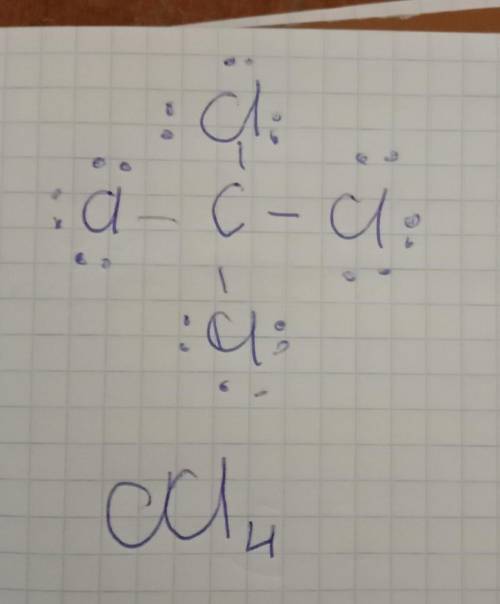 Cl
Cl – C – Cl
Cl
CCl₄